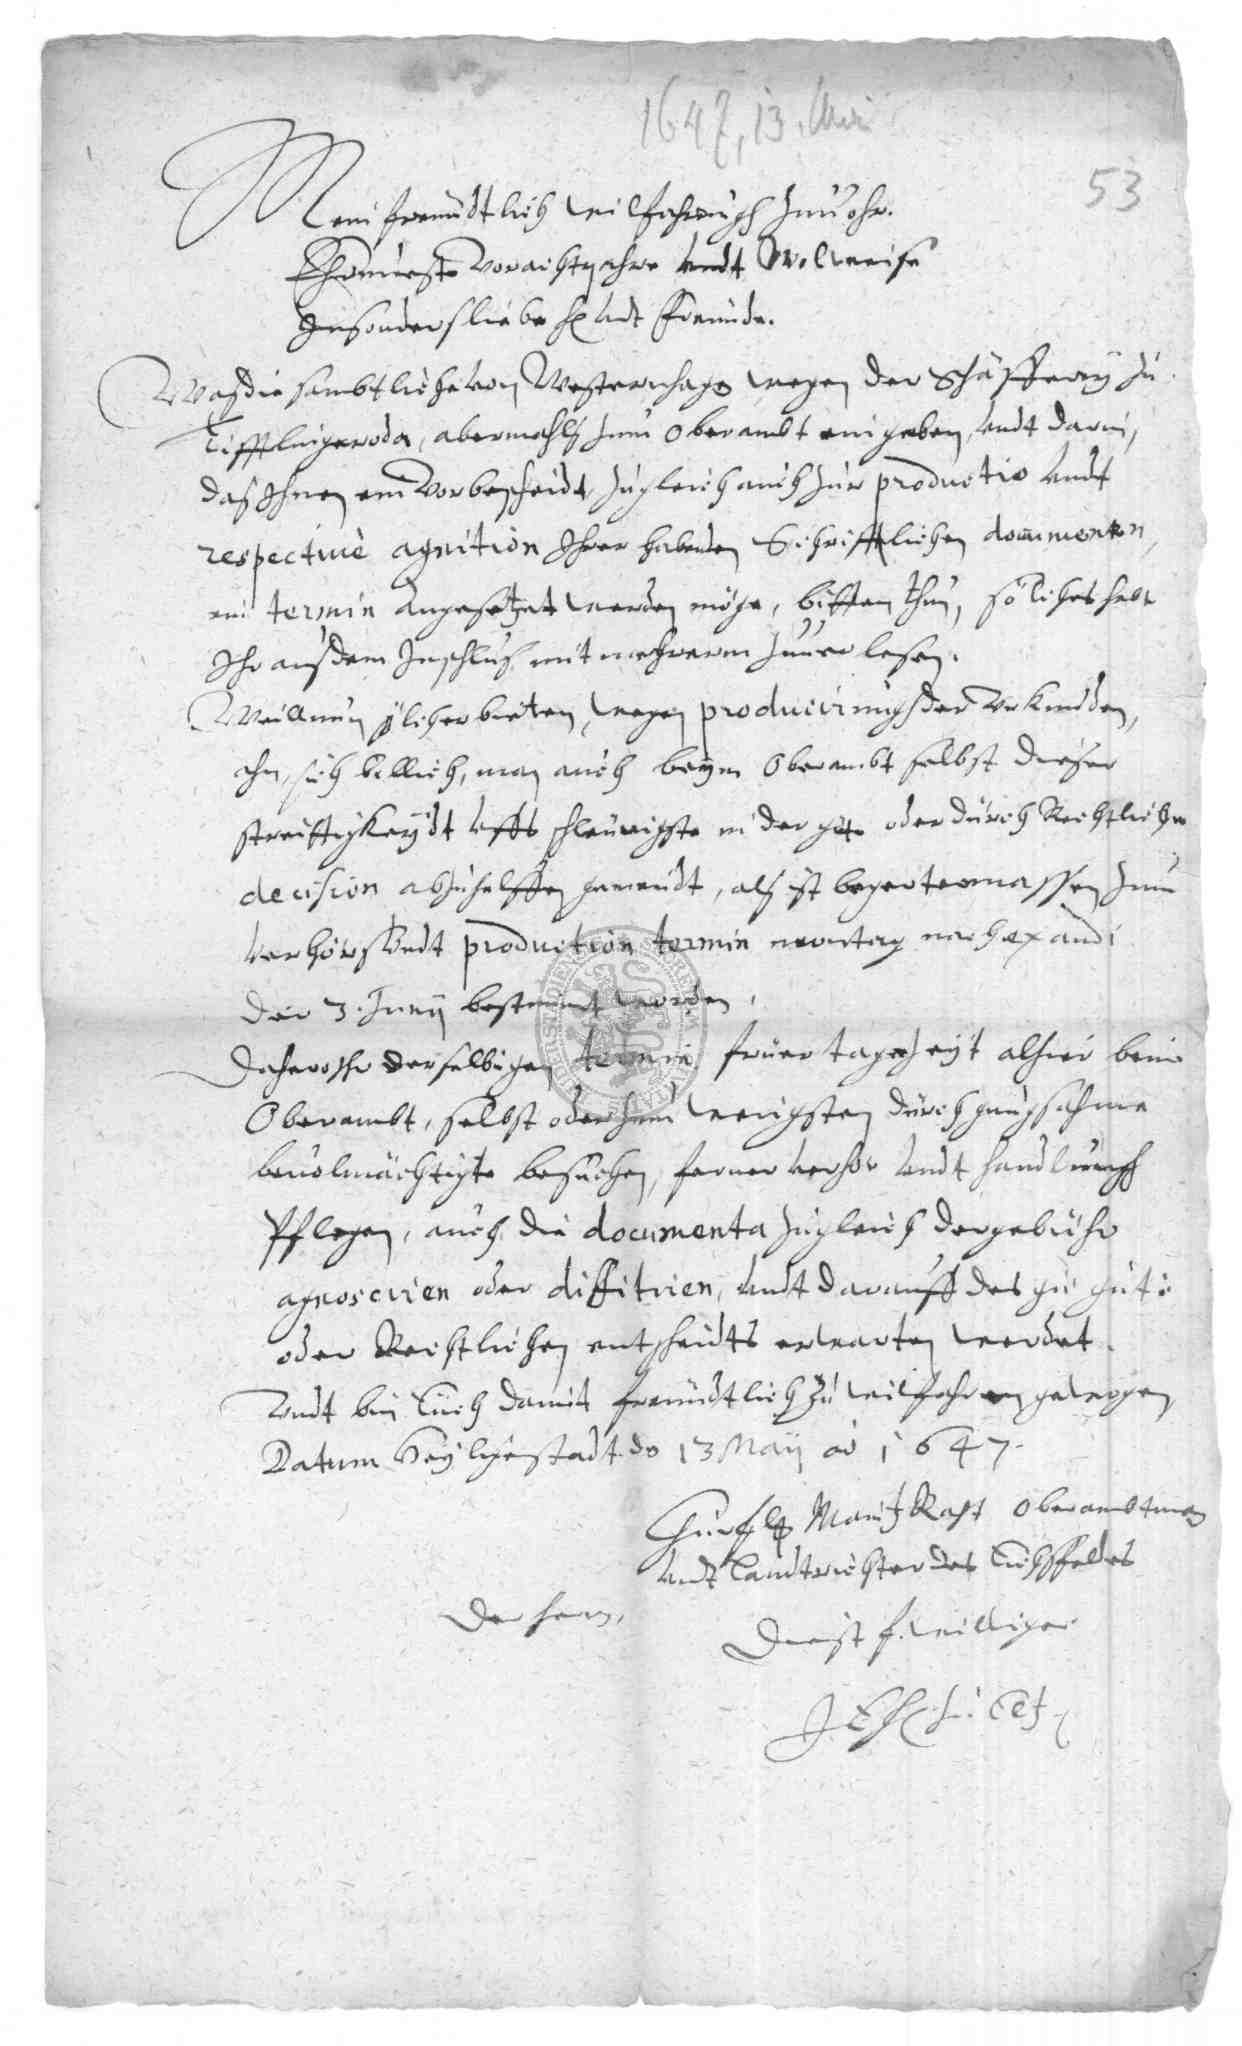 1647, 13. Mai
53
Mein freundtlich wilfahrungh zuuohr.
Ehrnueste vorachtpahre vndt Wolweise
Insonders liebe H vndt Freunde.
Was die sambtliche von Westernhagen wegen der Schäfferey zu
Tifftlingeroda, abermahlß zum Oberambt eingeben, vndt darin,
daß Ihnen ein Vorbescheidt, zugleich auch zur productio vndt
respectiuè agnition Ihrer habenden Schrifftlichen documenten,
ein termin angesetzet werden möge, bitten thun, solches habt
Ihr auß dem Inschluß mit mehrerm zuuerlesen.
Weill nun solcher bieten, wegen producirung der Vrkunden,
ahn sich billich, man auch beym Oberambt selbst dieser
streittigkeydt vffs schleunigste in der güte oder durch Rechtliche
decision abzuhelffen gemeindt, alß ist begertermassen zum
verhör vndt production termin montag nach Exaudi
der 3. Junij bestimbt worden,
Dahero Ihr derselbigen termin früer tagezeyt alhier beim
Oberambt, selbst oder zum wenigsten durch gnugsahme
beuolmächtigte besuchen, ferner verhör vndt handlungh
Pflegen, auch die documenta zugleich der gebühr
agnoscirien oder diffitirien, vndt darauff des zu güte
oder Rechtlichen entscheidts erwarten werdet.
Vndt bin Euch damit freundtlich zu wilfahren gewogen
Datum Heyligenstadt do 13 Maij ao 1647.
Churfl Maintz Raht Oberambtman
vndt Landtrichter des Eichsfeldes
Der hern,
Dienst f. williger